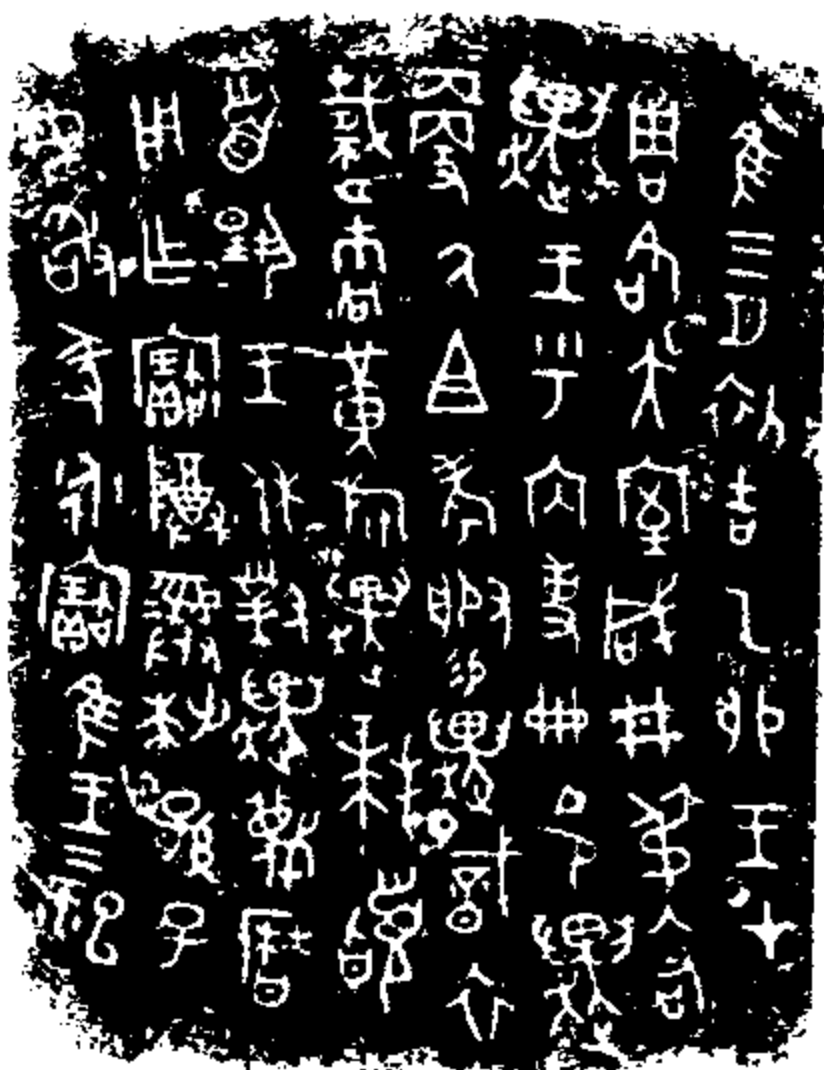 隹三月初吉乙卯王才
周各大室咸井叔入右
趩王乎內史冊令趩
更氒且考服易趩戠衣
載巿冋黃旂趩拜𩒨
首揚王休對趩蔑曆
用乍寶尊彝世孫子
毋敢㒸永寶隹王二祀